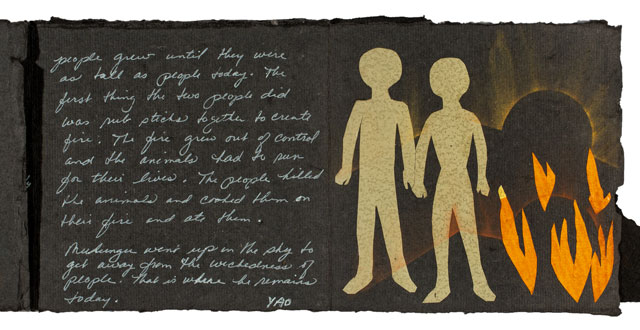 people grew until they were
as tall as people today. The
first thing the two people did
was rub sticks together to create
fire. The fire grew out of control
and the animals had to run
for their lives. The people killed
the animals and cooked them on
their fire and ate them.
Mulungu went up in the sky to
get away from the wickedness of
people. That is where he remains
today.
YAO